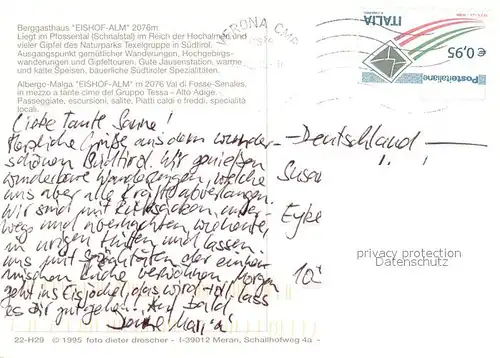 Berggasthaus "EISHOF-ALM" 2076m
Liegt im Pfossental (Schnalstal) im Reich der Hochalmen und
vieler Gipfel des Naturparks Texelgruppe in Südtirol.
Ausgangspunkt gemütlicher Wanderungen, Hochgebirgs-
wanderungen und Gipfeltouren. Gute Jausenstation, warme
und kalte Speisen, bäuerliche Südtiroler Spezialitäten.
Albergo-Malga "EISHOF-ALM" m 2076 Val di Fosse-Senales,
in mezzo a tante cime del Gruppo Tessa - Alto Adige.
Passeggiate, escursioni, salite. Piatti caldi e freddi, specialità
locali.
VERONA CMP
ITALIA
€ 0,95
Posteitaliane
Liebe Tante Sanne!
Herzliche Grüße aus dem wunder-
schönen Südtirol. Wir genießen
wunderbare Wanderungen, welche
uns aber alle Kräfte abverlangen.
Wir sind mit Rucksäcken unter-
wegs und übernachten
in urigen Hütten und lassen
uns mit Spezialitäten der einhei-
mischen Küche verwöhnen. Morgen
geht ins Eisjöchel, das wird toll, lass
es dir gut gehen. Auf bald
Deine
- Deutschland -
Susan
Eyke
10
privacy protection
Datenschutz
22-H29 © 1995 foto dieter drescher - I-39012 Meran, Schallhofweg 4a -